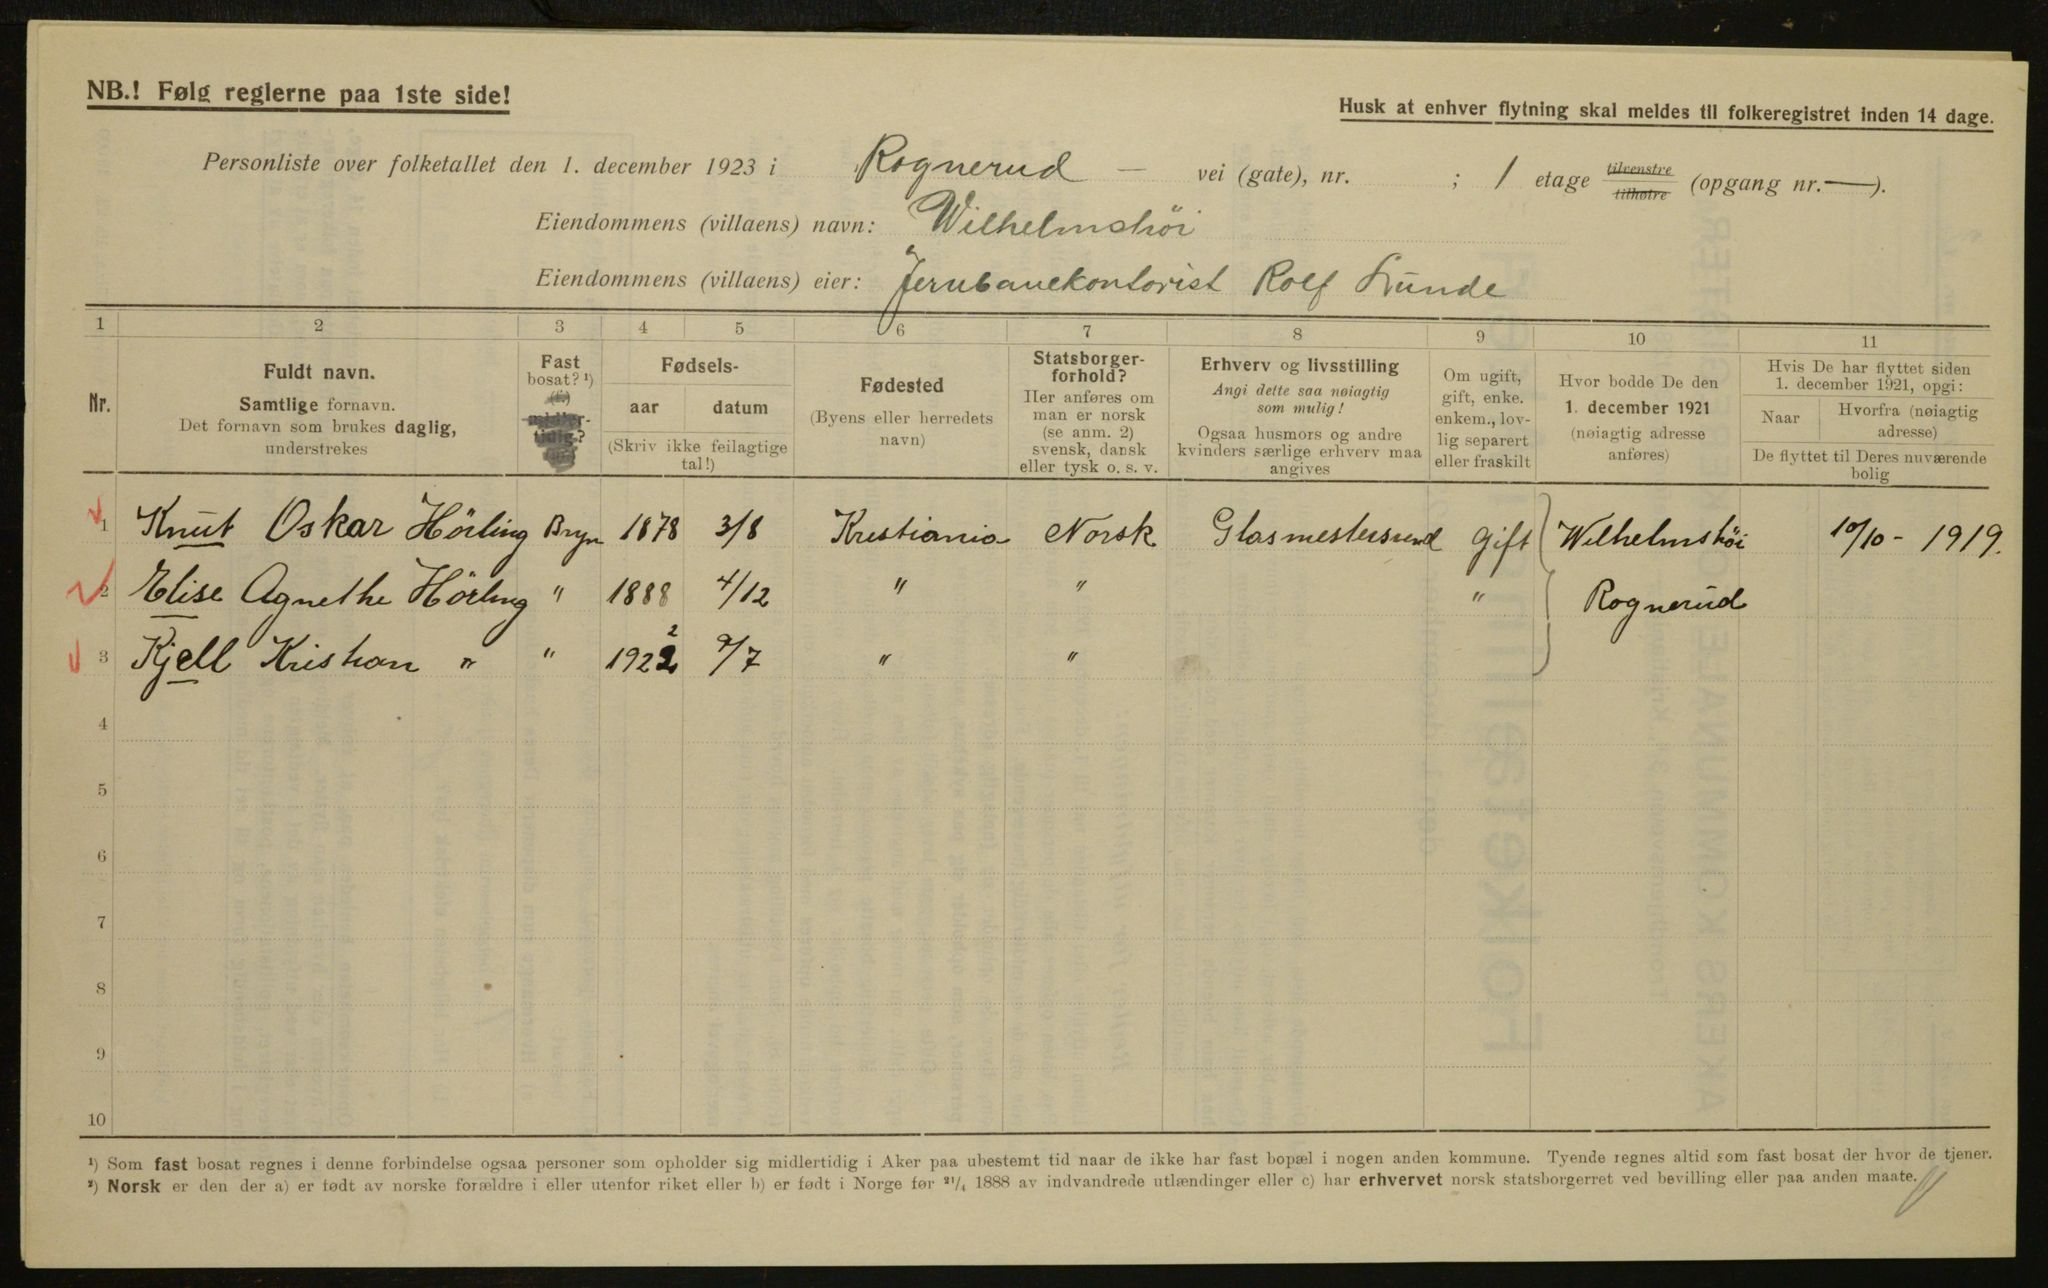 NB.! Følg reglerne paa 1ste side!
Husk at enhver flytning skal meldes til folkeregistret inden 14 dage.
Personliste over folketallet den 1. december 1923 i Rognerud — vei (gate), nr. ; 1 etage tilvenstre tilhøire (opgang nr. —).
Eiendommens (villaens) navn: Wilhelmshöi
Eiendommens (villaens) eier: Jernbanekontorist Rolf Lunde
1 2 3 4 5 6 7 8 9 10 11
Nr.
Fuldt navn.
Samtlige fornavn.
Det fornavn som brukes daglig,
understrekes
Fast
bosat? ¹)
Fødsels-
aar datum
(Skriv ikke feilagtige
tal!)
Fødested
(Byens eller herredets
navn)
Statsborger-
forhold?
Her anføres om
man er norsk
(se anm. 2)
svensk, dansk
eller tysk o. s. v.
Erhverv og livsstilling
Angi dette saa nøiagtig
som mulig!
Ogsaa husmors og andre
kvinders særlige erhverv maa
angives
Om ugift,
gift, enke.
enkem., lov-
lig separert
eller fraskilt
Hvor bodde De den
1. december 1921
(nøiagtig adresse
anføres)
Hvis De har flyttet siden
1. december 1921, opgi:
Naar Hvorfra (nøiagtig
adresse)
De flyttet til Deres nuværende
bolig
1 Knut Oskar Hörling Bryn 1878 3/8 Kristiania Norsk Glasmestersvend gift Wilhelmshöi 10/10 - 1919.
2 Elise Agnethe Hörling " 1888 4/12 " " " Rognerud
3 Kjell Kristian " " 1922 2 9/7 " "
4
5
6
7
8
9
10
¹) Som fast bosat regnes i denne forbindelse ogsaa personer som opholder sig midlertidig i Aker paa ubestemt tid naar de ikke har fast bopæl i nogen anden kommune. Tyende regnes altid som fast bosat der hvor de tjener.
²) Norsk er den der a) er født av norske forældre i eller utenfor riket eller b) er født i Norge før 21/4 1888 av indvandrede utlændinger eller c) har erhvervet norsk statsborgerret ved bevilling eller paa anden maate.